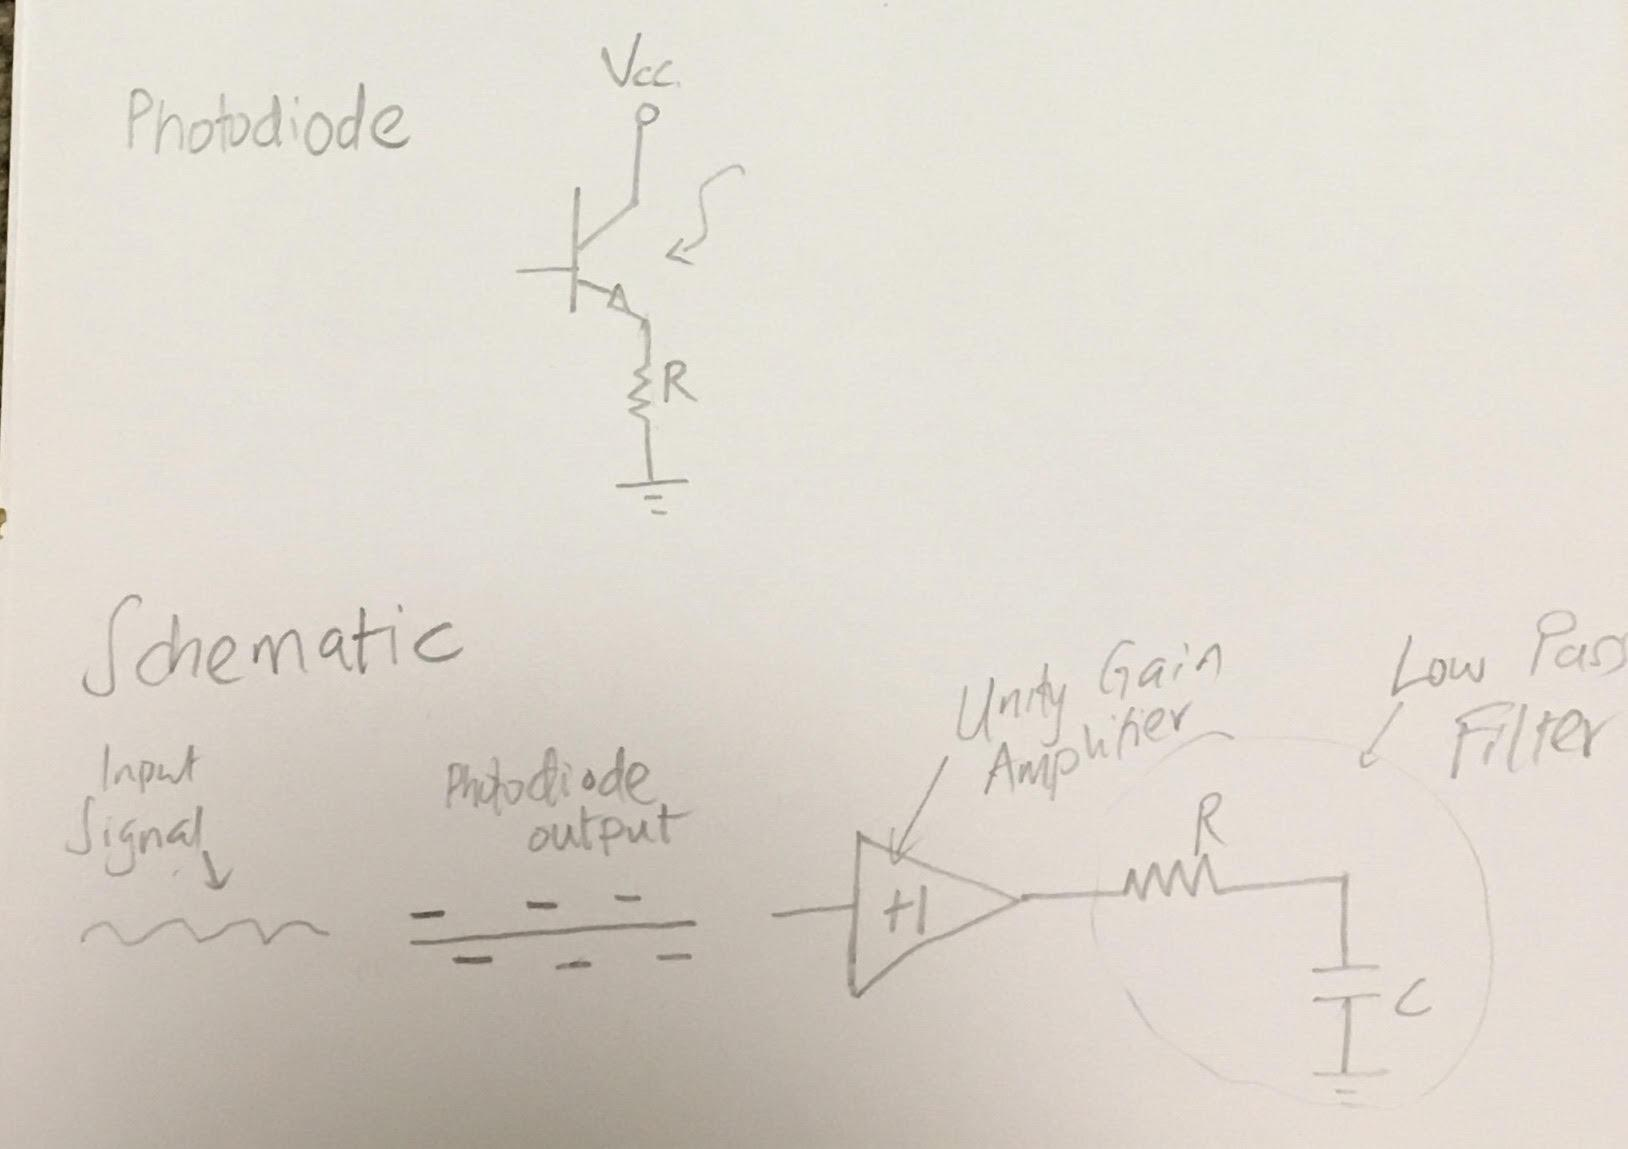 Vcc.
Photodiode
R
Schematic
Input
Signal
Photodiode
output
Unity Gain
Amplifier
Low Pass
Filter
+1
R
C